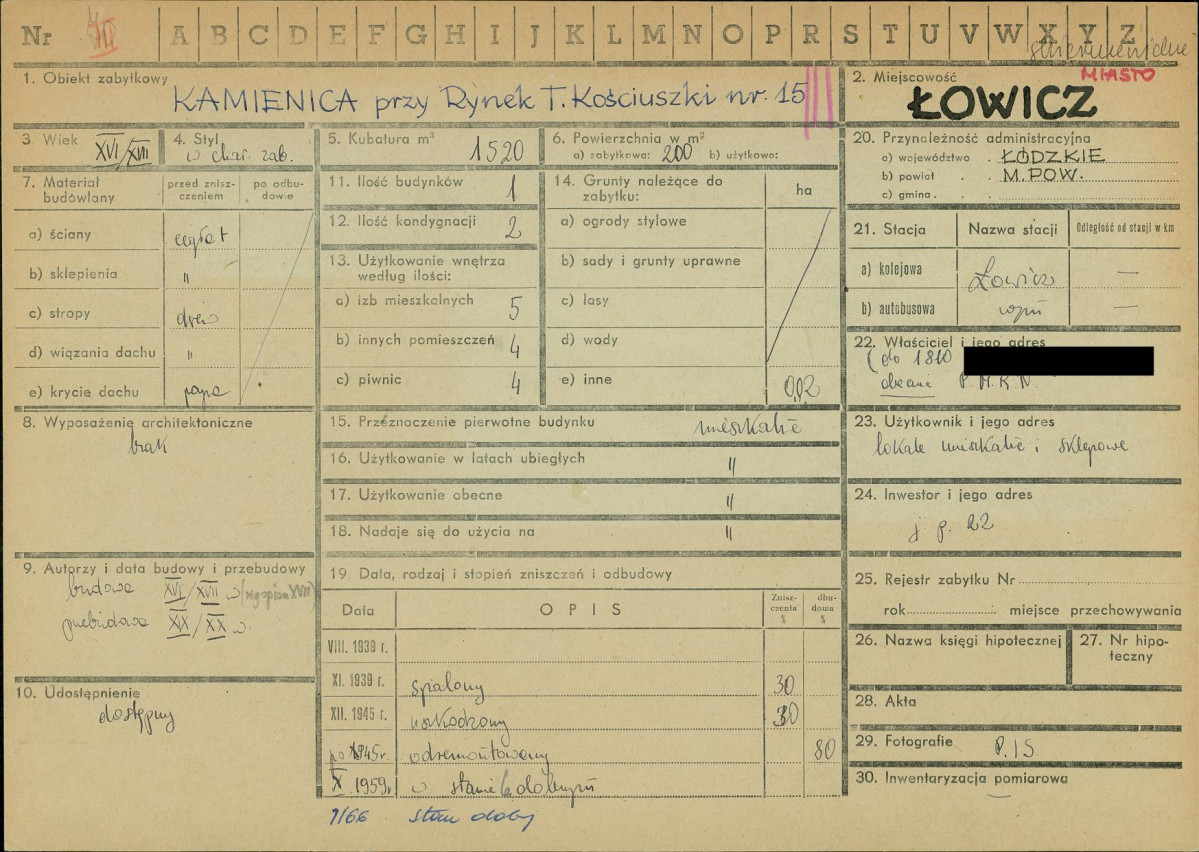 Nr VII A B C D E F G H I J K L M N O P R S T U V W X Y Z
1. Obiekt zabytkowy
KAMIENICA przy Rynek T. Kościuszki nr. 15
2. Miejscowość MIASTO
ŁOWICZ
3. Wiek XVI/XVII
4. Styl
w char. zab.
5. Kubatura m³ 1520
6. Powierzchnia w m²
a) zabytkowa: 200 b) użytkowa:
20. Przynależność administracyjna
a) województwo . ŁÓDZKIE
b) powiat . . M.POW.
c) gmina . . .
7. Materiał budowlany
przed znisz-
czeniem
po odbu-
dowie
a) ściany cegła t
b) sklepienia "
c) stropy drew
d) wiązania dachu "
e) krycie dachu papa
11. Ilość budynków 1
12. Ilość kondygnacji 2
13. Użytkowanie wnętrza
według ilości:
a) izb mieszkalnych 5
b) innych pomieszczeń 4
c) piwnic 4
14. Grunty należące do
zabytku:
ha
a) ogrody stylowe
b) sady i grunty uprawne
c) lasy
d) wody
e) inne 0,02
21. Stacja Nazwa stacji Odległość od stacji w km
a) kolejowa Łowicz —
b) autobusowa —
22. Właściciel i jego adres
(do 1810
obecnie P.M.R.N.
8. Wyposażenie architektoniczne
brak
15. Przeznaczenie pierwotne budynku mieszkalne
16. Użytkowanie w latach ubiegłych "
17. Użytkowanie obecne "
18. Nadaje się do użycia na "
23. Użytkownik i jego adres
lokale mieszkalne i sklepowe
24. Inwestor i jego adres
j. p. 22
9. Autorzy i data budowy i przebudowy
budowa XVI/XVII w
przebudowa XIX/XX w.
10. Udostępnienie
dostępny
19. Data, rodzaj i stopień zniszczeń i odbudowy
Data OPIS
Znisz-
czenia
%
dbu-
dowa
%
VIII. 1939 r.
XI. 1939 r. spalony 30
XII. 1945 r. uszkodzony 30
po 1945 r. odremontowany 80
X 1959 r w stanie dobrym
1/66 stan dobry
25. Rejestr zabytku Nr
rok miejsce przechowywania
26. Nazwa księgi hipotecznej
27. Nr hipo-
teczny
28. Akta
29. Fotografie P.I.S.
30. Inwentaryzacja pomiarowa
—